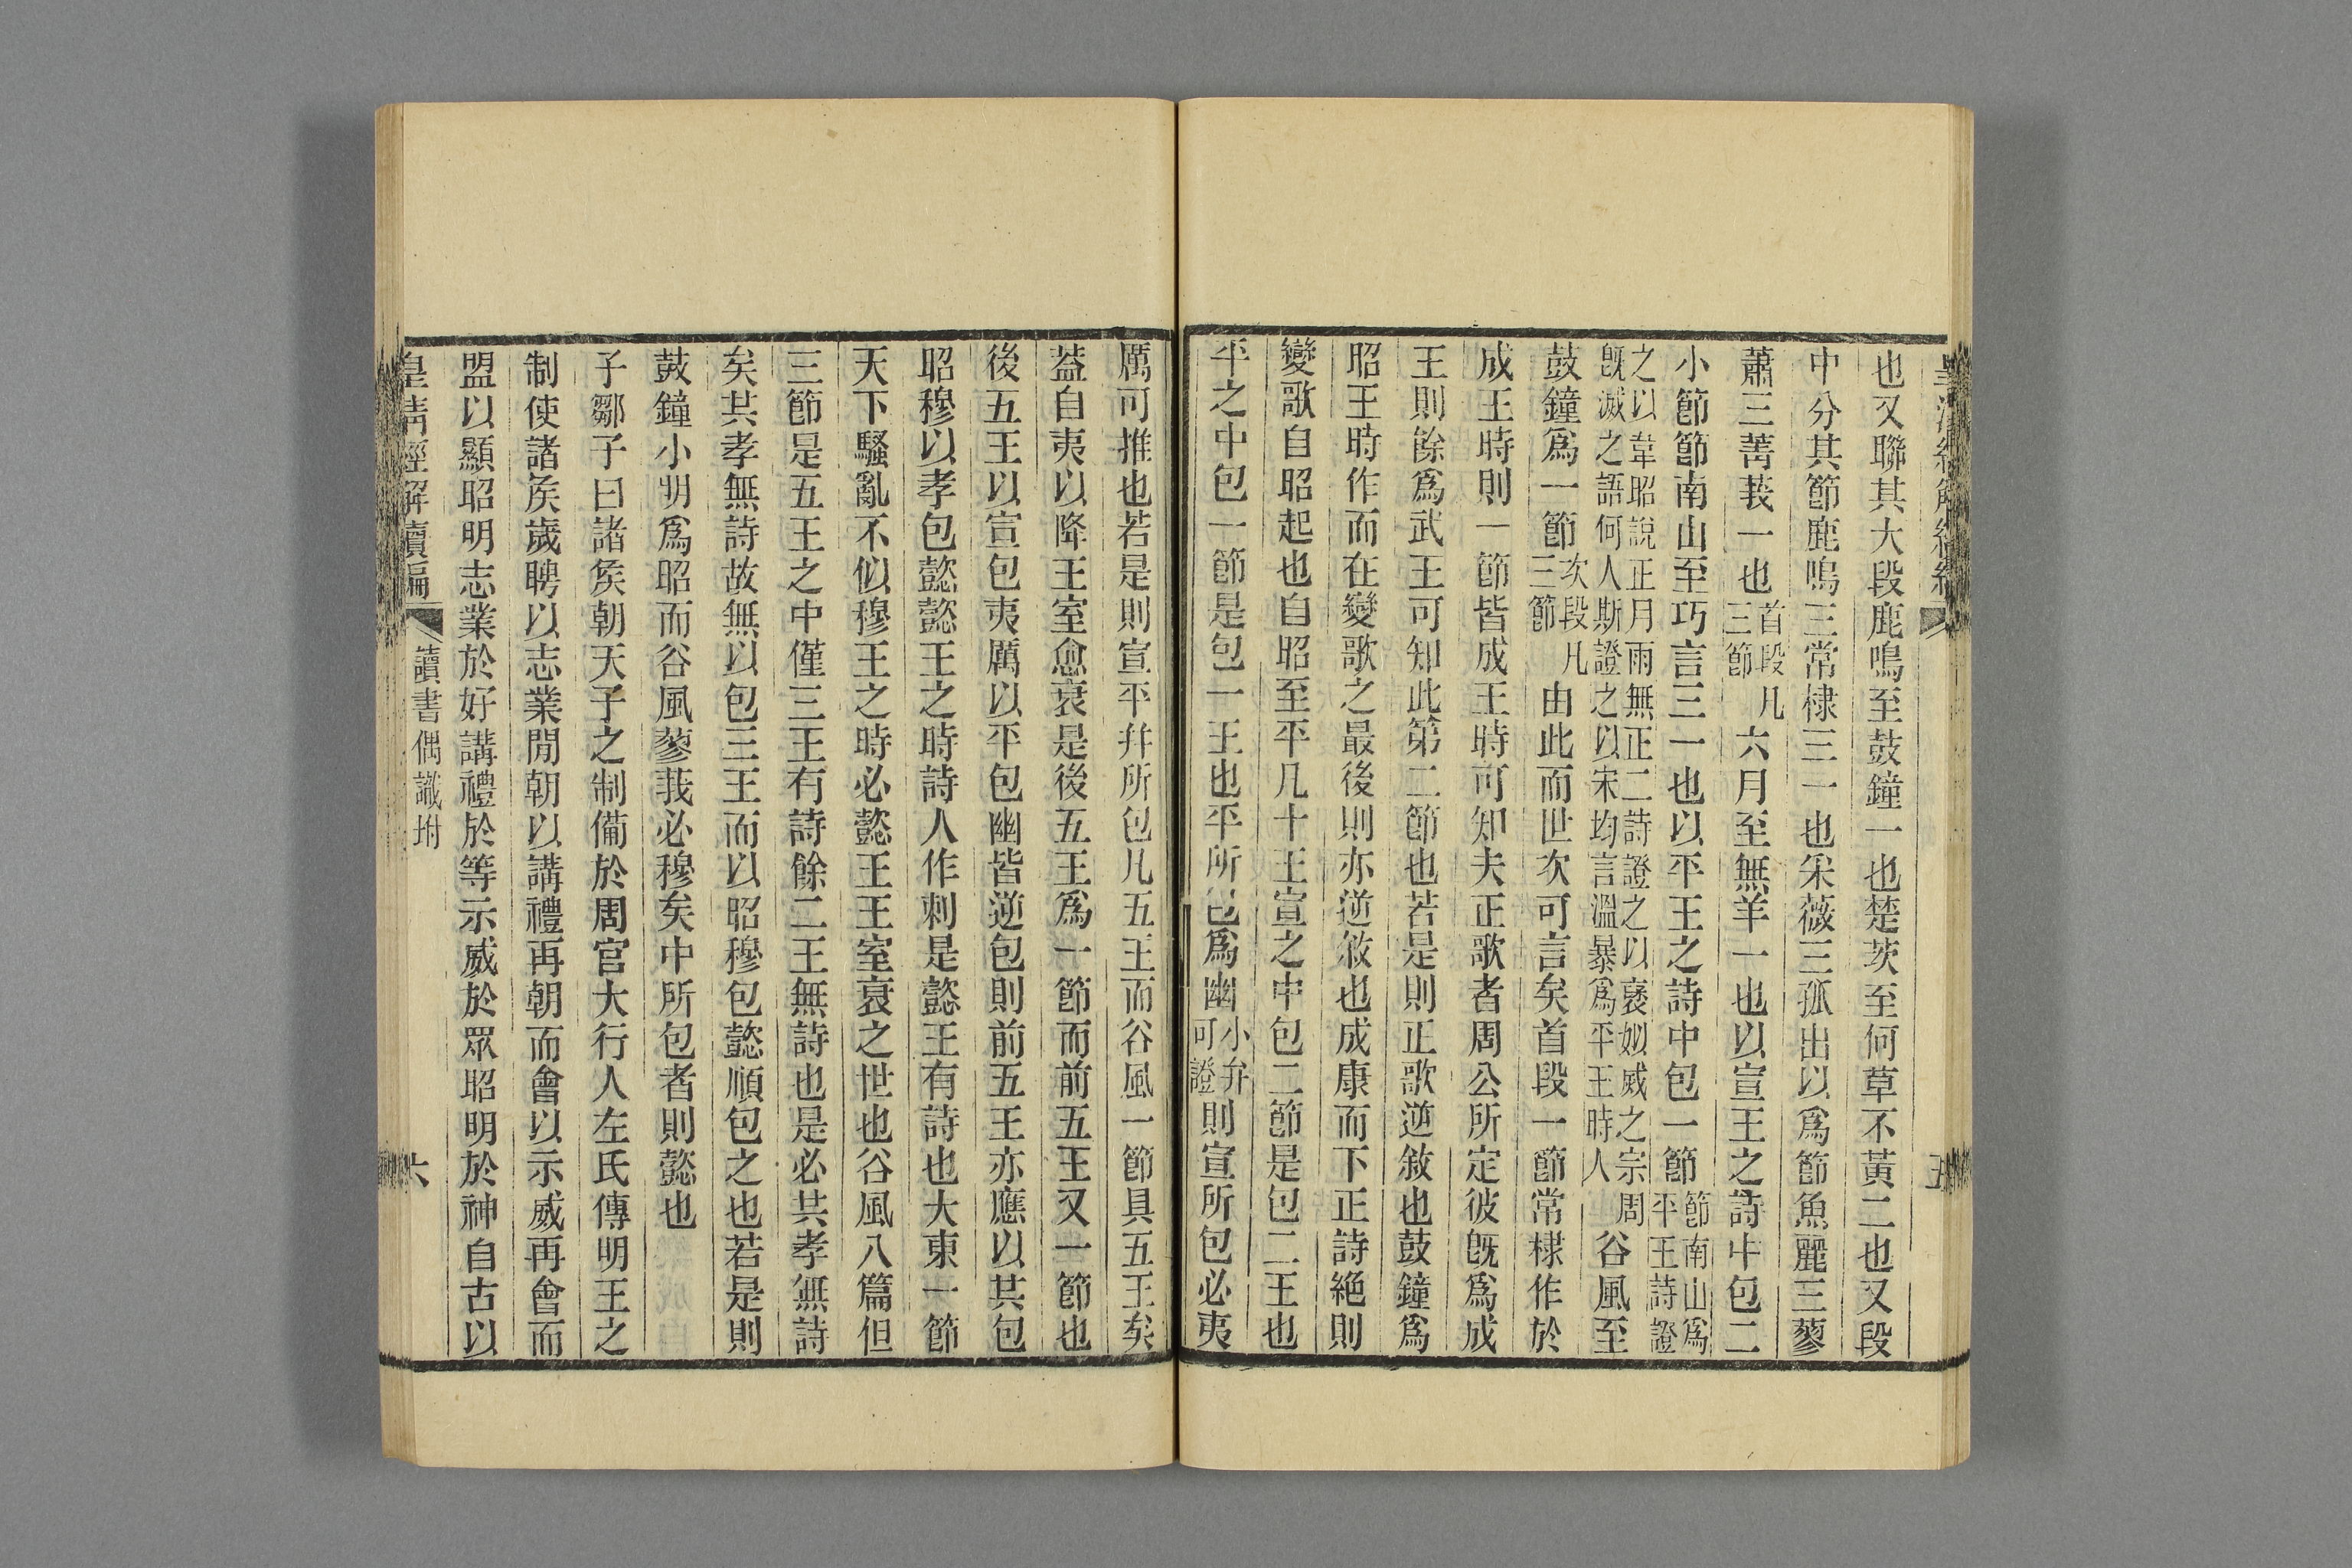 也又聯其大段鹿鳴至鼓鐘一也楚茨至何草不黃二也又段
中分其節鹿鳴三常棣三一也采薇三孤出以爲節魚麗三蓼
蕭三菁莪一也首段凡三節六月至無羊一也以宣王之詩中包二
小節節南山至巧言三一也以平王之詩中包一節節南山爲平王詩證
之以韋昭說正月雨無正二詩證之以褒姒威之宗周旣滅之語何人斯證之以宋均言溫暴爲平王時人谷風至
鼓鐘爲一節次段凡三節由此而世次可言矣首段一節常棣作於
成王時則一節皆成王時可知夫正歌者周公所定彼旣爲成
王則餘爲武王可知此第二節也若是則正歌逆敘也鼓鐘爲
昭王時作而在變歌之最後則亦逆敘也成康而下正詩絕則
變歌自昭起也自昭至平凡十王宣之中包二節是包二王也
平之中包一節是包一王也平所包爲幽小弁可證則宣所包必夷
厲可推也若是則宣平幷所包凡五王而谷風一節具五王矣
葢自夷以降王室愈衰是後五王爲一節而前五王又一節也
後五王以宣包夷厲以平包幽皆逆包則前五王亦應以其包
昭穆以孝包懿懿王之時詩人作刺是懿王有詩也大東一節
天下騷亂不似穆王之時必懿王王室衰之世也谷風八篇但
三節是五王之中僅三王有詩餘二王無詩也是必共孝無詩
矣其孝無詩故無以包三王而以昭穆包懿順包之也若是則
鼓鐘小明爲昭而谷風蓼莪必穆矣中所包者則懿也
子鄒子曰諸矦朝天子之制備於周官大行人左氏傳明王之
制使諸矦歲聘以志業閒朝以講禮再朝而會以示威再會而
盟以顯昭明志業於好講禮於等示威於眾昭明於神自古以
皇清經解續編
讀書偶識坿
六